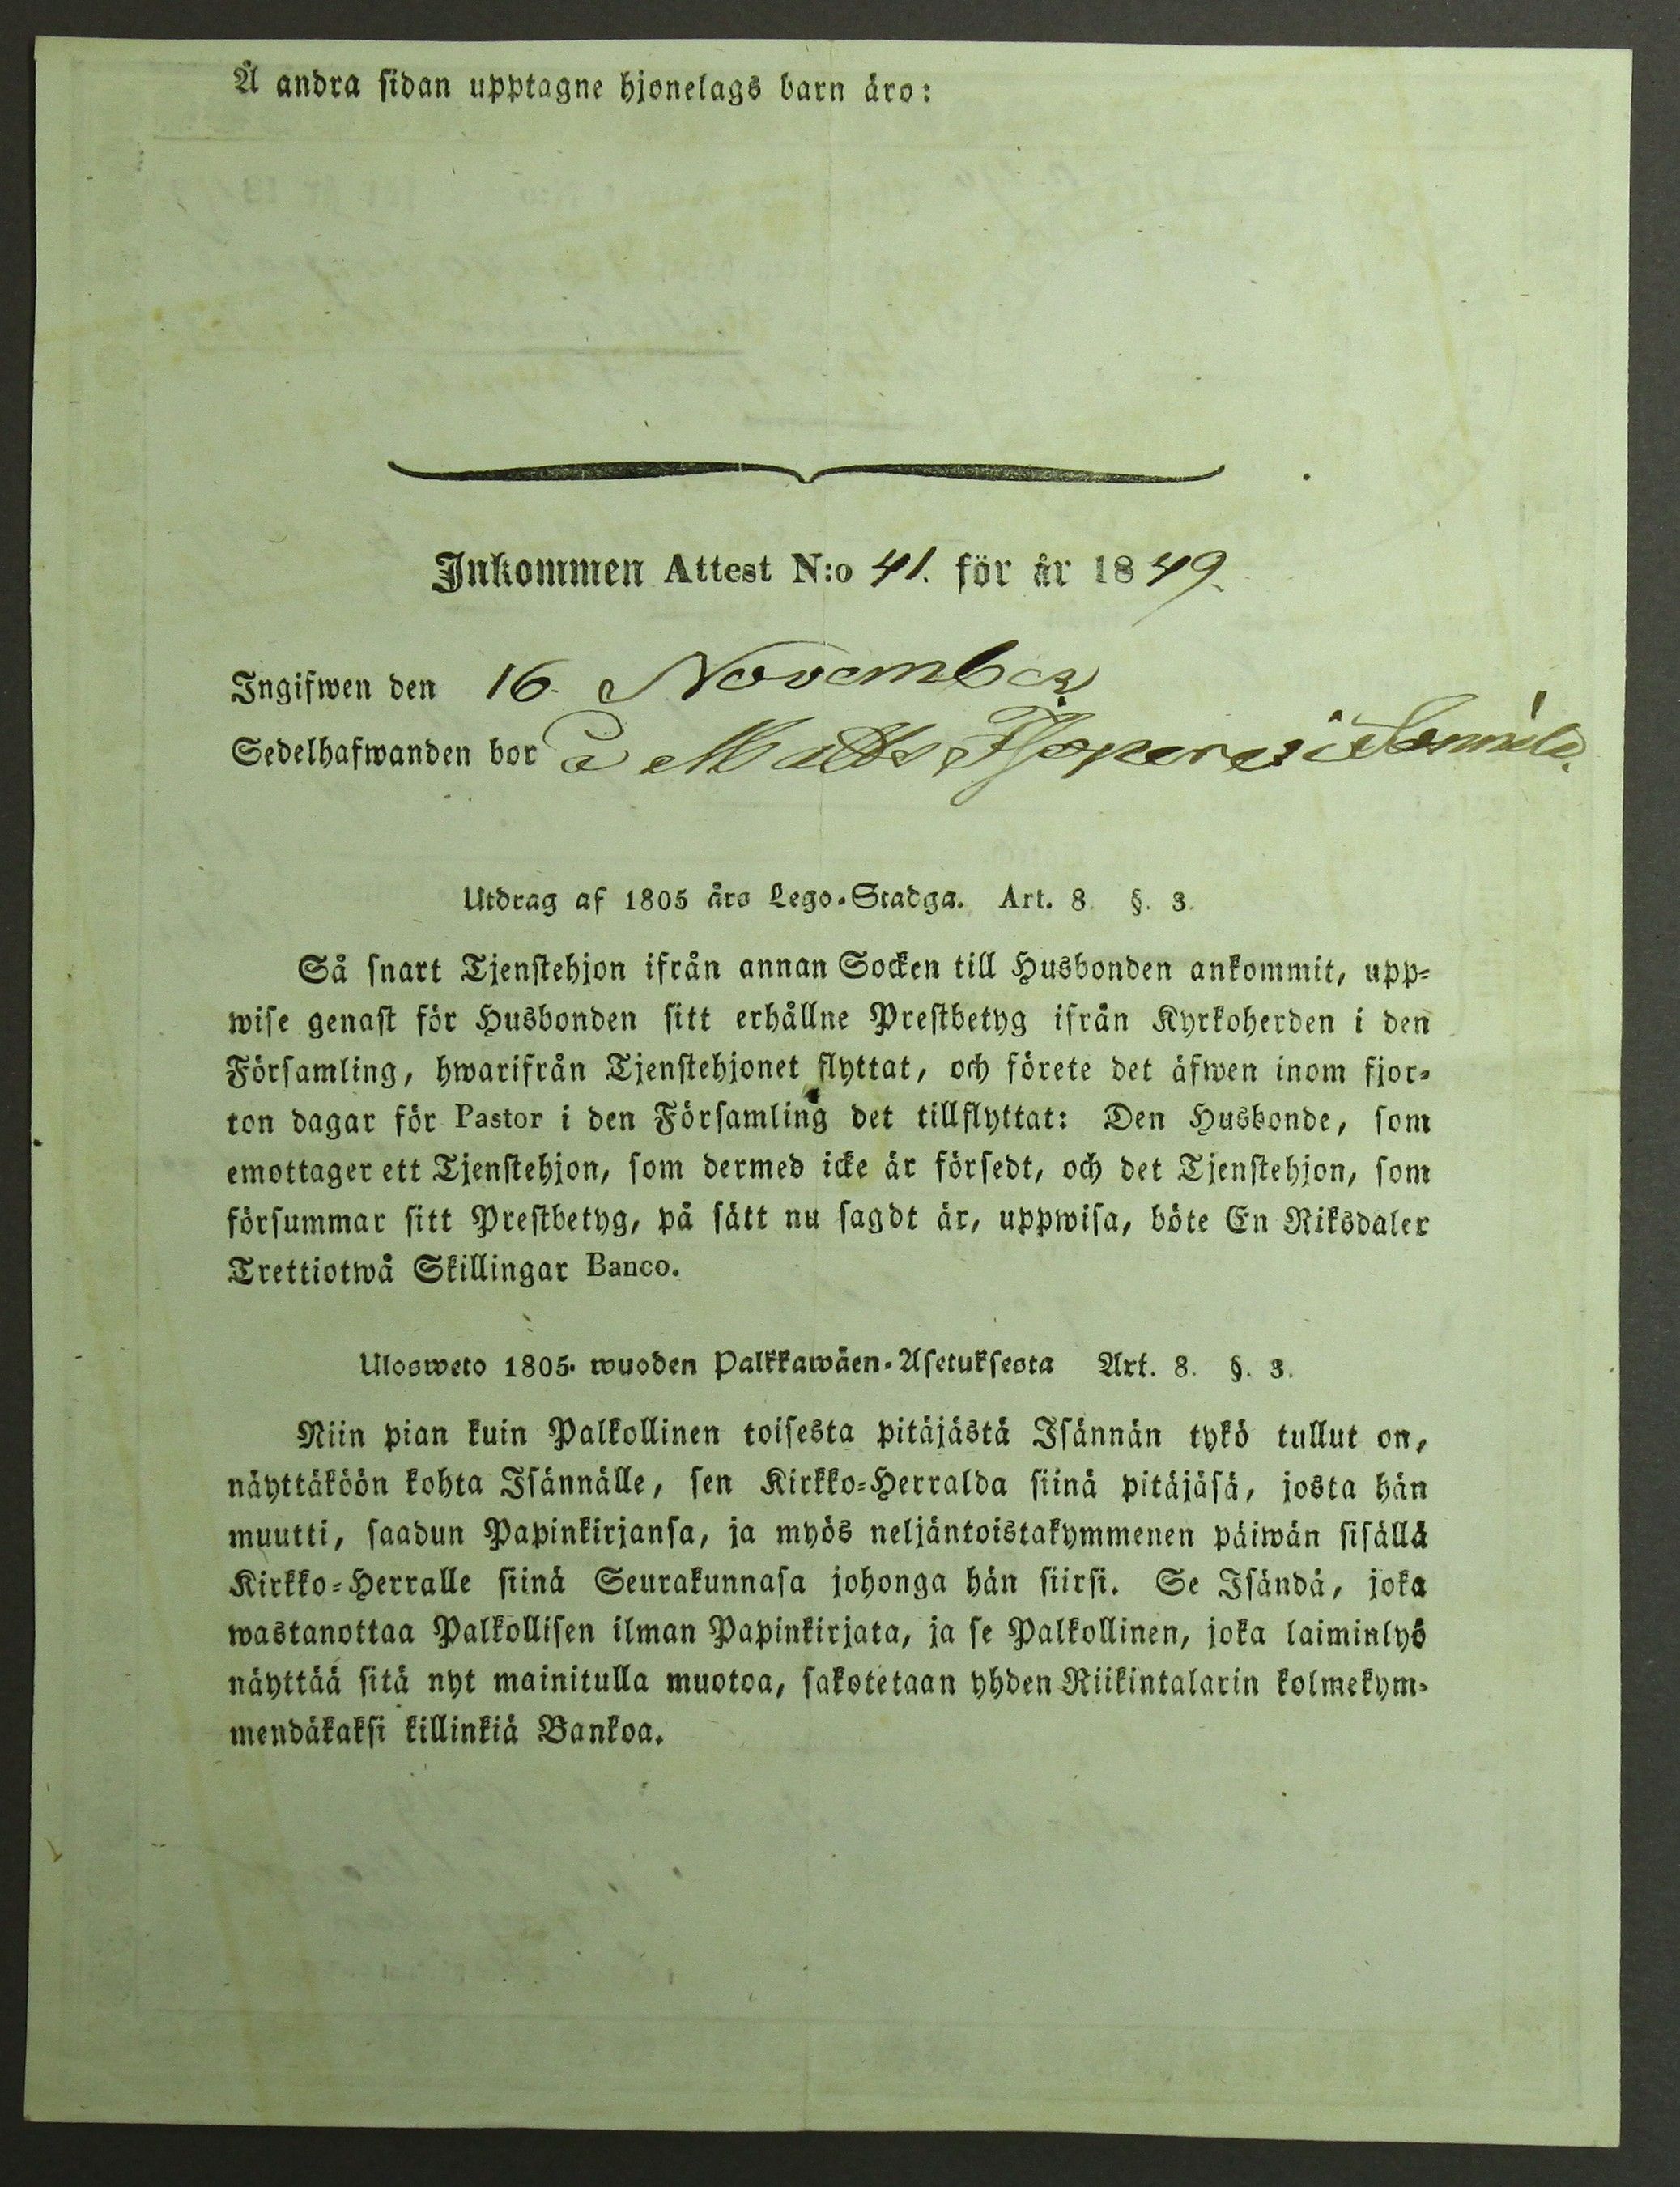 Å andra sidan upptagne hjonelags barn äro:
Inkommen Attest N:o 41. för år 1849.
Ingifwen den 16. November
Sedelhafwanden bor å Matts
Utdrag af 1805 års Lego-Stadga. Art. 8. §. 3.
Så snart Tjenstehjon ifrån annan Socken till Husbonden ankommit, upp-
wise genast för Husbonden sitt erhållne Prestbetyg ifrån Kyrkoherden i den
Församling, hwarifrån Tjenstehjonet flyttat, och förete det äfwen inom fjor-
ton dagar för Pastor i den Församling det tillflyttat: Den Husbonde, som
emottager ett Tjenstehjon, som dermed icke är försedt, och det Tjenstehjon, som
försummar sitt Prestbetyg, på sätt nu sagdt är, uppwisa, böte En Riksdaler
Trettiotwå Skillingar Banco.
Ulosweto 1805. wuoden Palkkawäen-Asetuksesta Art. 8. §. 3.
Niin pian kuin Palkollinen toisesta pitäjästä Isännän tykö tullut on,
näyttäköön kohta Isännälle, sen Kirkko-Herralda siinä pitäjäsä, josta hän
muutti, saadun Papinkirjansa, ja myös neljäntoistakymmenen päiwän sisällä
Kirkko-Herralle siinä Seurakunnasa johonga hän siirsi. Se Isändä, joka
wastanottaa Palkollisen ilman Papinkirjata, ja se Palkollinen, joka laiminlyö
näyttää sitä nyt mainitulla muotoa, sakotetaan yhden Riikintalarin kolmekym-
mendäkaksi killinkiä Bankoa.